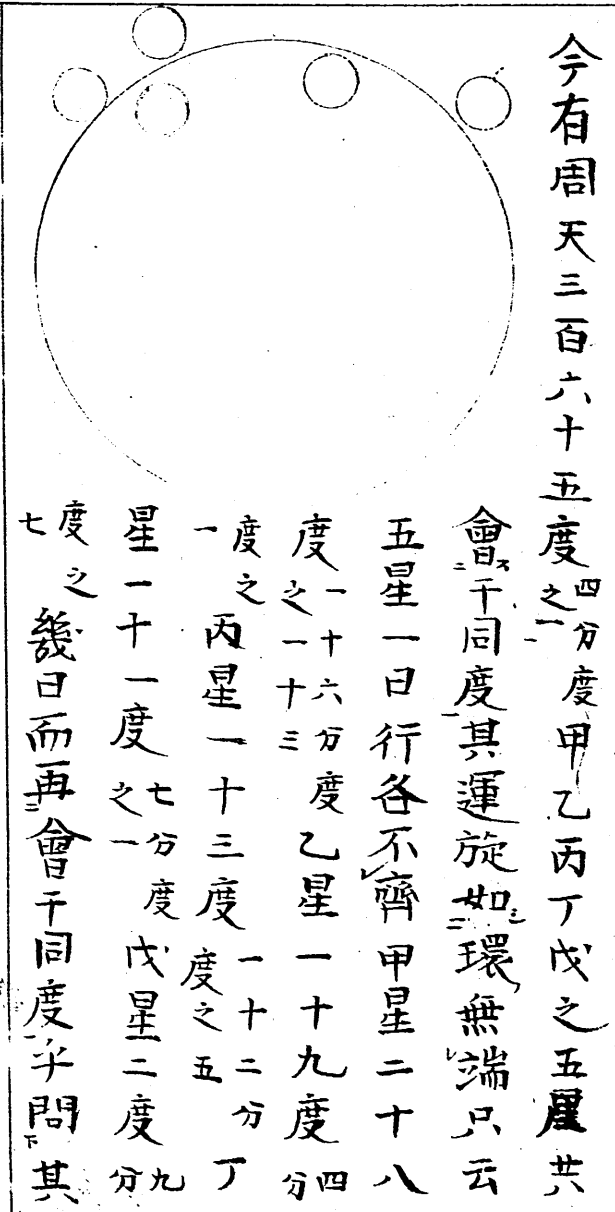 今有周天三百六十五度四分度之一甲乙丙丁戊之五星共
會于同度其運旋如環無端只云
五星一日行各不齊甲星二十八
度一十六分度之一十三乙星一十九度四分
度之一丙星一十三度一十二分度之五丁
星一十一度七分度之一戊星二度九分
度之七幾日而再會于同度乎問其